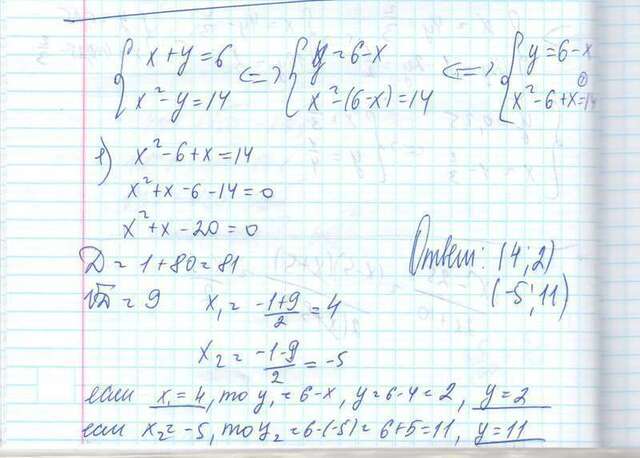 { x+y=6 <=> { y=6-x <=> { y=6-x
{ x²-y=14 { x²-(6-x)=14 { x²-6+x=14
1) x²-6+x=14
x²+x-6-14=0
x²+x-20=0
D=1+80=81
√D=9 x₁=(-1+9)/2=4
x₂=(-1-9)/2=-5
Ответ: (4;2)
(-5;11)
если x₁=4, то y₁=6-x, y=6-4=2, y=2
если x₂=-5, то y₂=6-(-5)=6+5=11, y=11